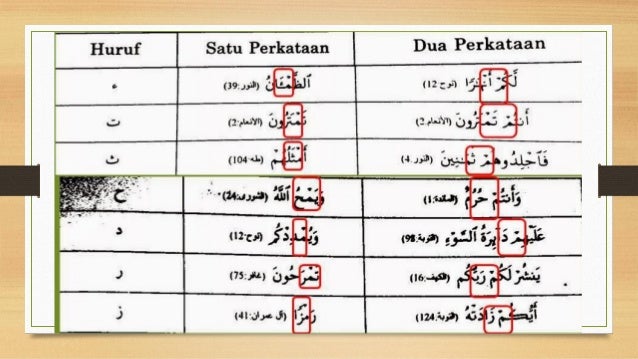 Huruf Satu Perkataan Dua Perkataan
ء ٱلظَّمْـَٔانُ (النور:39) لَّكُمْ أَنْهَٰرًا (نوح:12)
ت تَمْتَرُونَ (الأنعام:2) أَنتُمْ تَمْتَرُونَ (الأنعام:2)
ث أَمْثَلُهُمْ (طه:104) فَٱجْلِدُوهُمْ ثَمَٰنِينَ (النور:4)
ح وَيَمْحُ ٱللَّهُ (الشورى:24) وَأَنتُمْ حُرُمٌ (المائدة:1)
د وَيُمْدِدْكُم (نوح:12) عَلَيْهِمْ دَآئِرَةُ ٱلسَّوْءِ (التوبة:98)
ر تَمْرَحُونَ (غافر:75) يَنشُرْ لَكُمْ رَبُّكُم (الكهف:16)
ز رَمْزًا (آل عمران:41) أَيُّكُمْ زَادَتْهُ (التوبة:124)